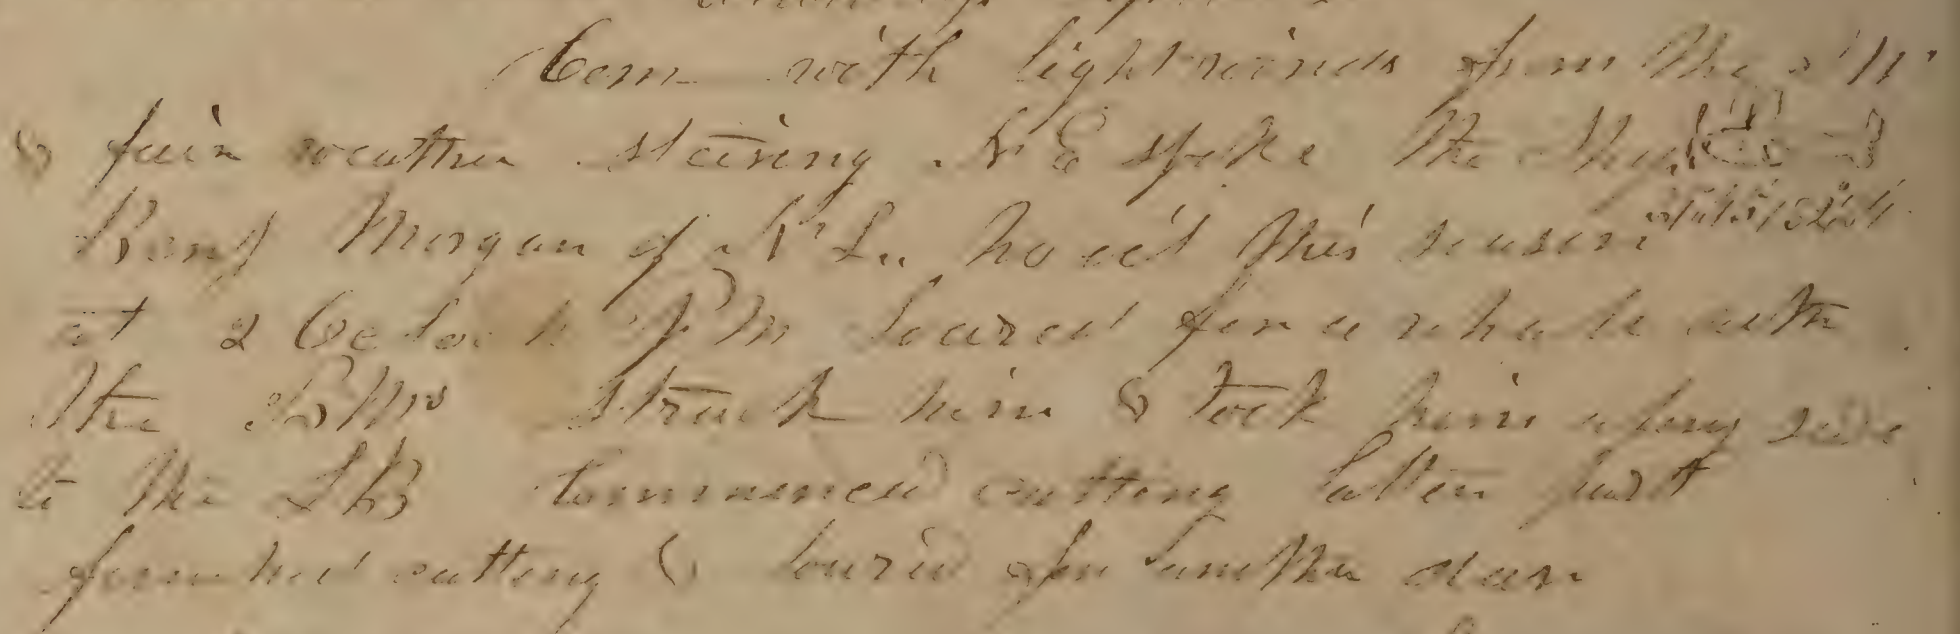 Com with light winds from the
& fair weather steiring N E spoke the Ship
Benj Morgan of N Ln had this season
at 2 Oclock P M loared for a whale with
the SBMs Struck him & took him along side
to the LB Commenced cutting latter part
finnihed cutting & lourd for another